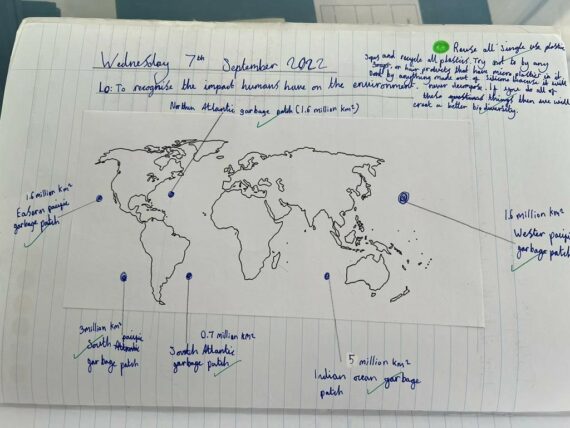 Wednesday 7th September 2022
Reuse all single use plastic
and recycle all plastics. Try not to by any
or hair products that have micro plastics in it
by anything made out of silicone because it will
never decompose. If you do all of
these things then we will
creat a better biodiversity.
LO: To recognise the impact humans have on the environment.
North Atlantic garbage patch (1.6 million km²)
1.6 million km²
Eastern pacific
garbage patch
1.6 million km²
Wester pacific
garbage patch
3 million km²
South Atlantic pacific
garbage patch
0.7 million km²
South Atlantic
garbage patch
5 million km²
Indian ocean garbage
patch